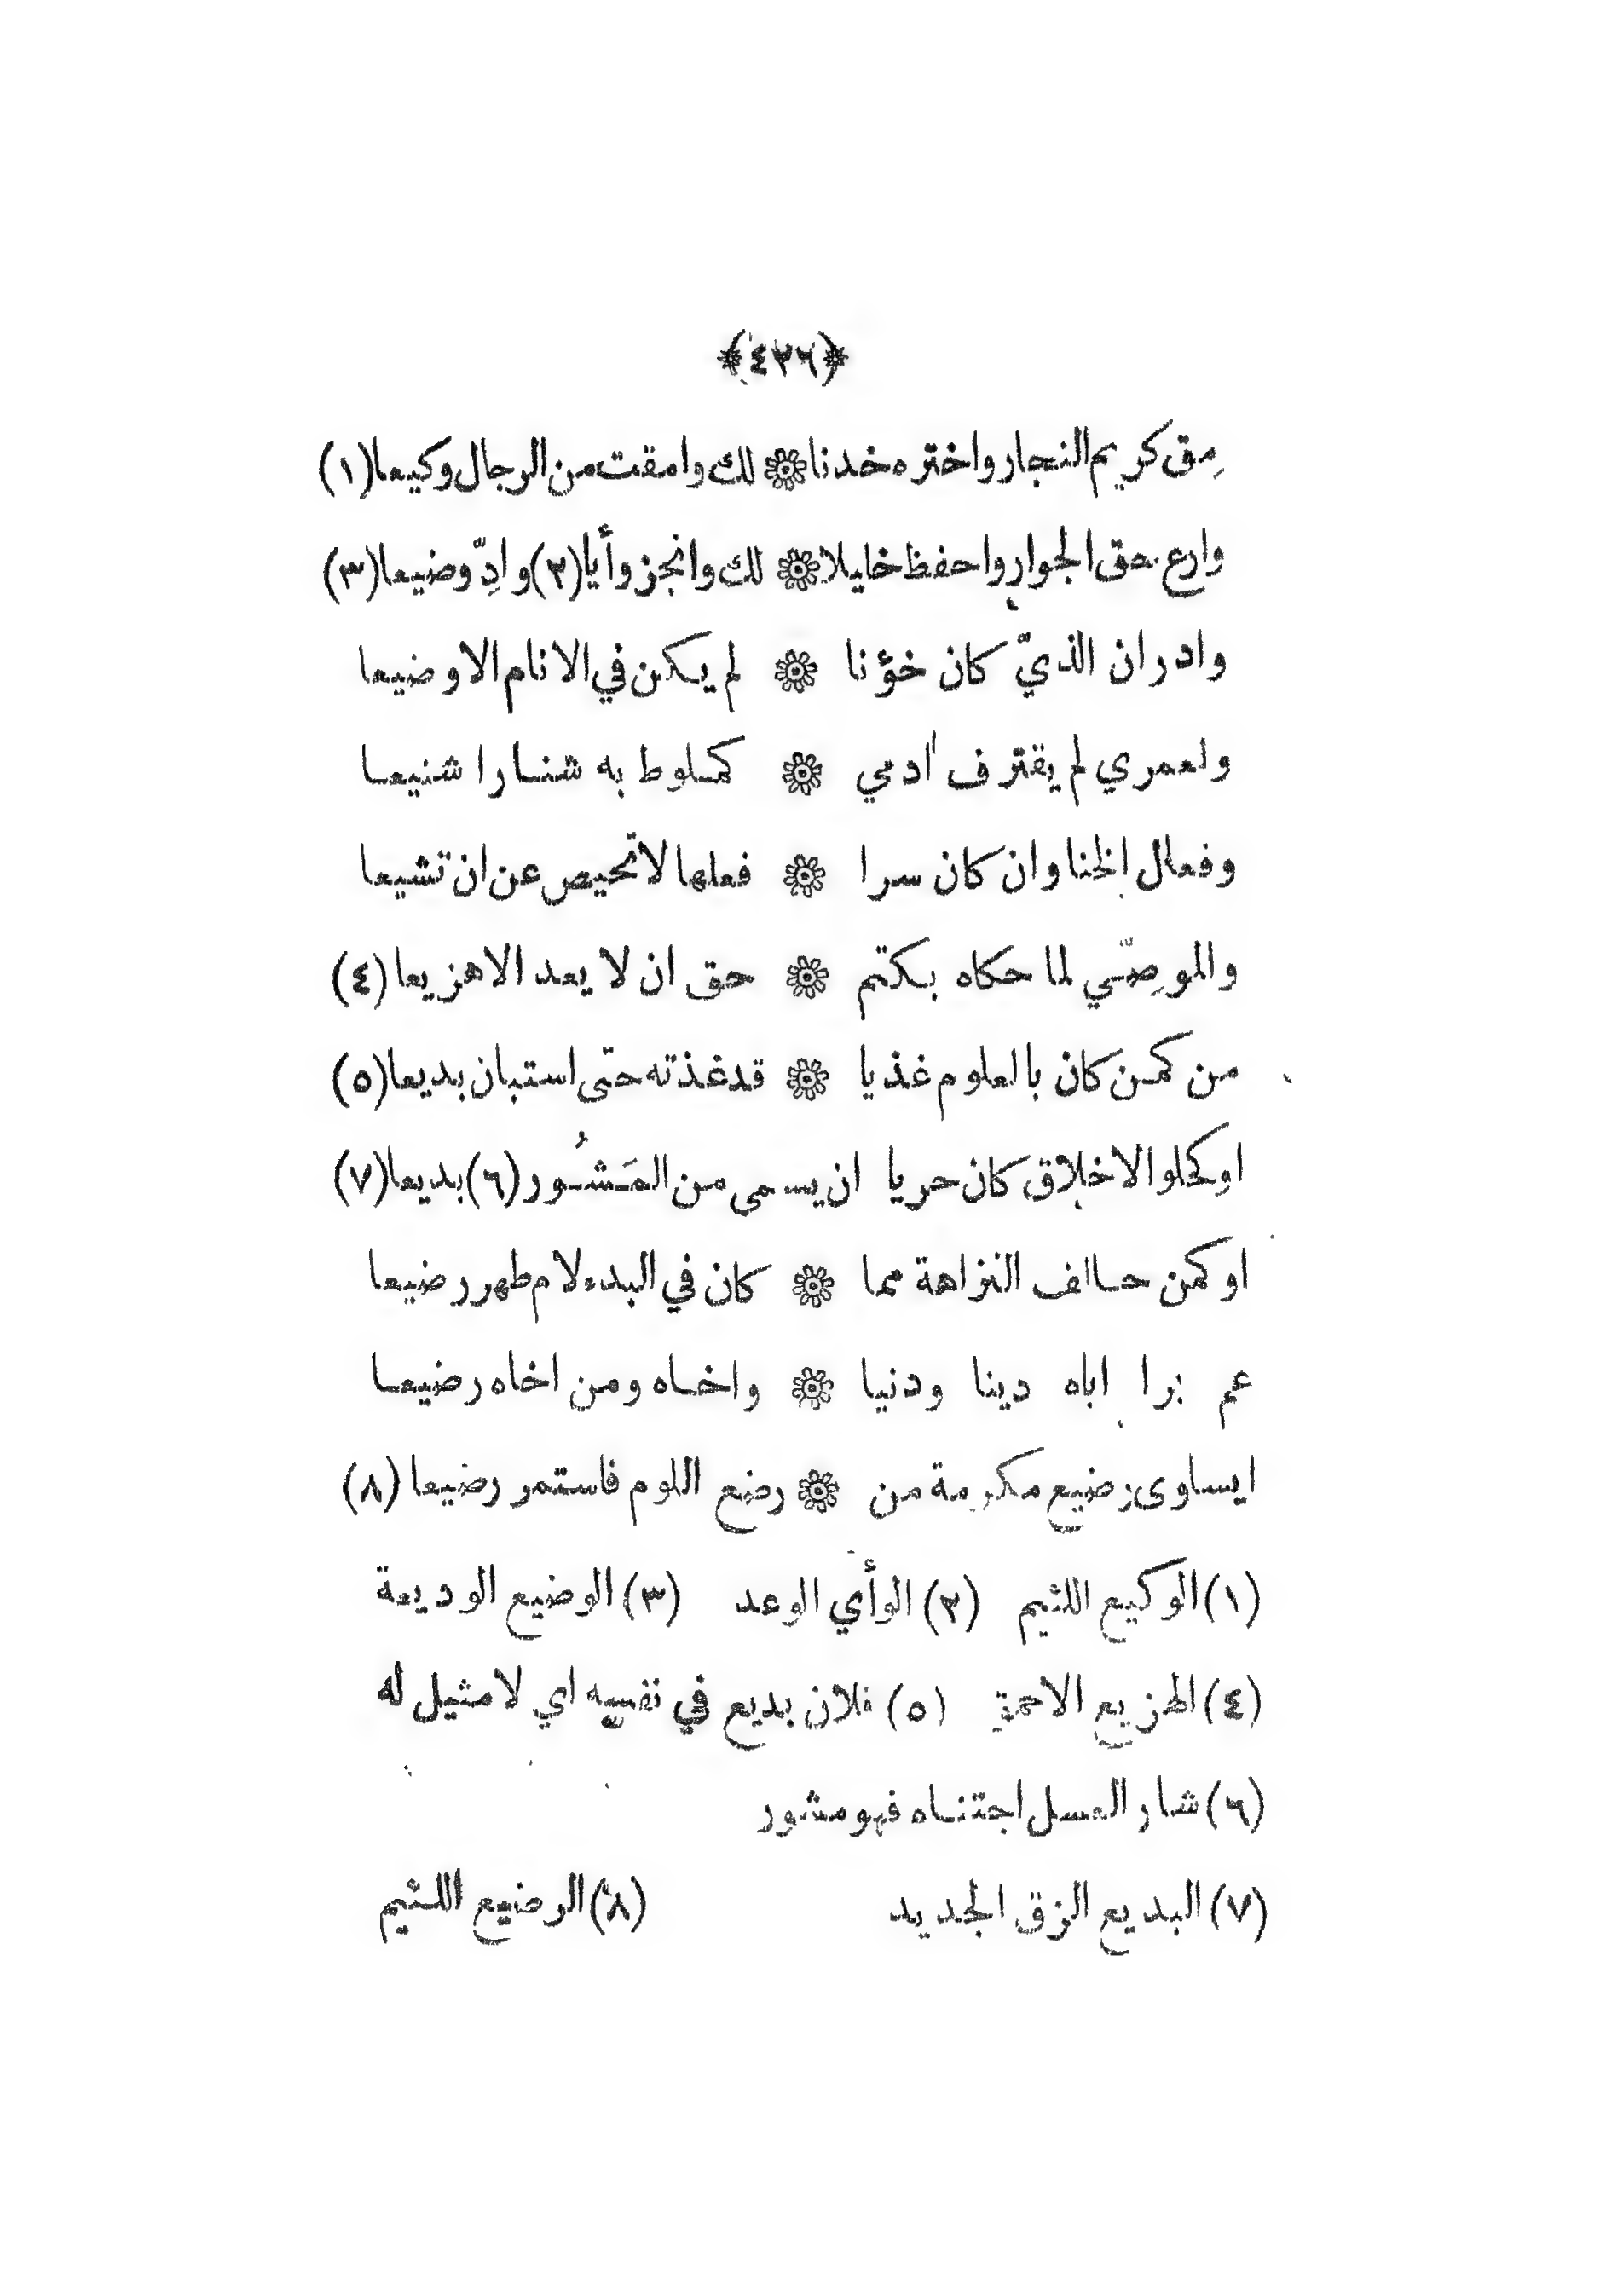 ﴿٤٢٦﴾
مِق كريم النجار واختره خدنا ۞ لك وامقت من الرجال وكيعا (١)
وارع حق الجوار واحفظ خليلا ۞ لك وانجز وأيا (٢) وادِّ وضيعا (٣)
وادر ان الذيّ كان خؤنا ۞ لم يكن في الانام الا وضيعا
ولعمري لم يقترف آدمي ۞ كملوط به شنارا شنيعا
وفعال الخنا وان كان سرا ۞ فعلها لا تحيص عن ان تشيعا
والموصِّي لما حكاه بكتم ۞ حق ان لا يعد الا هزيعا (٤)
من كمن كان بالعلوم غذيا ۞ قد غذته حتى استبان بديعا (٥)
او كحلو الاخلاق كان حريا ان يسمى من المَشُور (٦) بديعا (٧)
او كمن حالف النزاهة مما ۞ كان في البدء لام طهر رضيعا
عم برا اباه دينا ودنيا ۞ واخاه ومن اخاه رضيعا
ايساوى رضيع مكرمة من ۞ رضع اللوم فاستمر رضيعا (٨)
(١) الوكيع اللئيم (٢) الوأي الوعد (٣) الوضيع الوديعة
(٤) الهزيع الاحمق (٥) فلان بديع في نفسه اي لا مثيل له
(٦) شار العسل اجتناه فهو مشور
(٧) البديع الزق الجديد (٨) الرضيع اللئيم